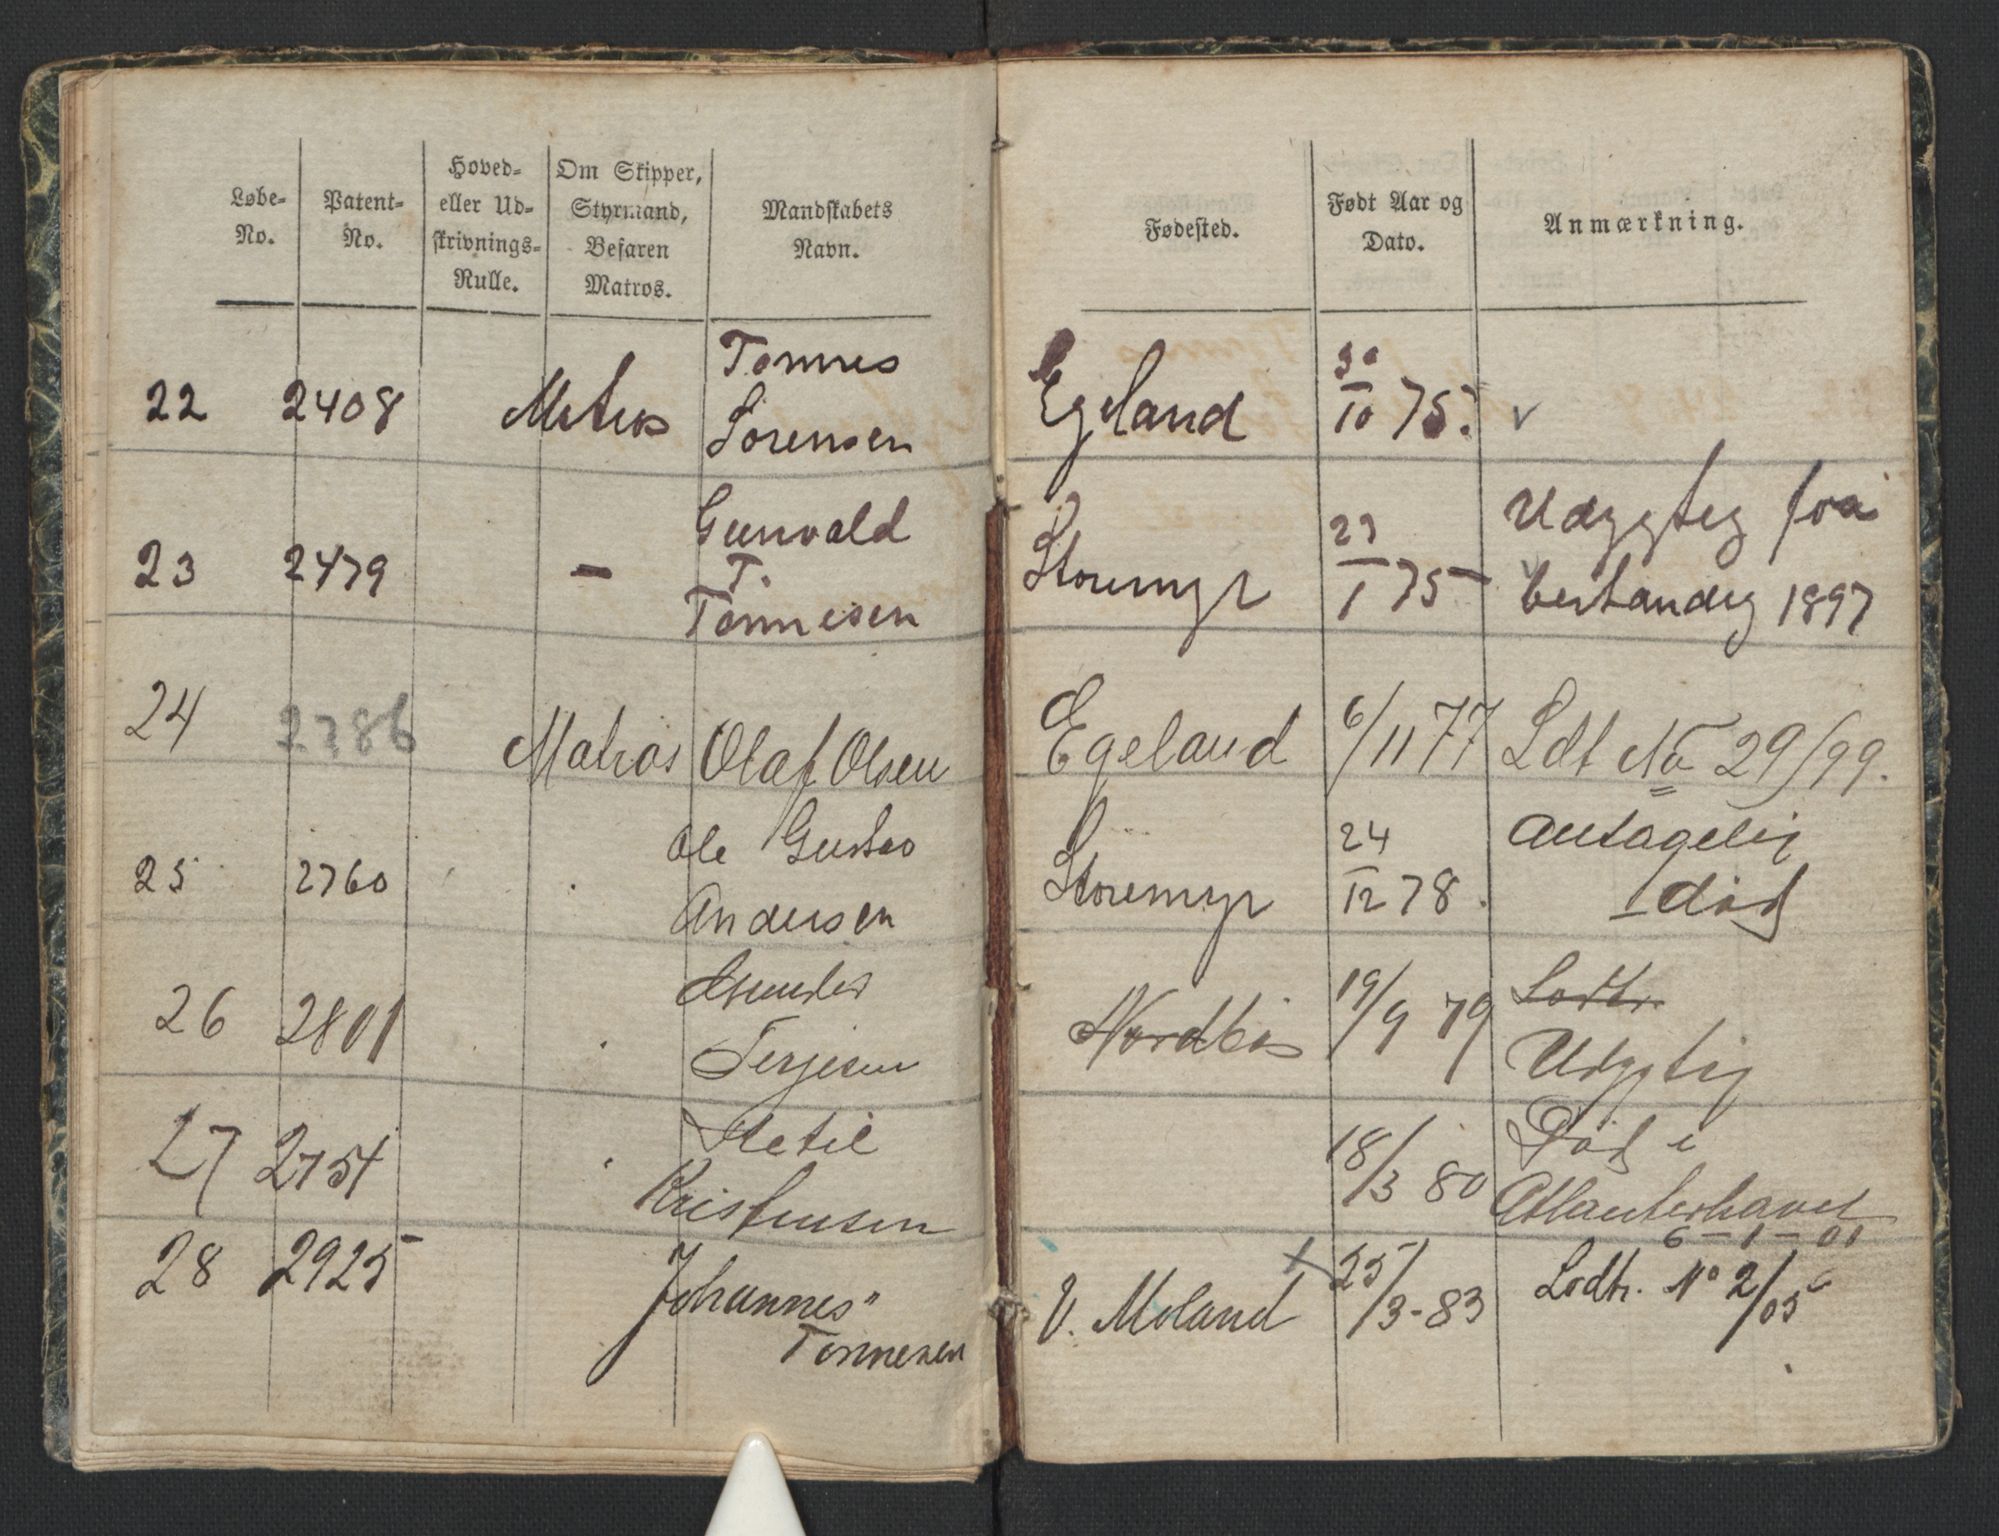 Løbe-
No.
Patent-
No.
Hoved-
eller Ud-
skrivnings-
Rulle.
Om Skipper,
Styrmand,
Befaren
Matros.
Mandskabets
Navn.
Fødested.
Født Aar og
Dato.
Anmærkning.
22 2408 Matros Tønnes
Sørensen
Egeland 30/10 75. v
23 2479 — Gunvald
T.
Tønnesen
Storemyr 23/1 75 Udygtig fra
bestandig 1897
24 2786 Matros Olaf Olsen
Egeland 6/11 77 Ldt No 29/99.
25 2760 Ole Gustav
Andersen
Storemyr 24/12 78. antagelig
død
26 2801
Terjesen
Nordbø 19/9 79 Lodtr.
Udygtig
27 2754 Ketil
Kristensen
18/3 80 Død i
Atlanterhavet
6-1-01
28 2925 Johannes
Tønnesen
V. Moland 25/3-83 Lodtr. No 2/05